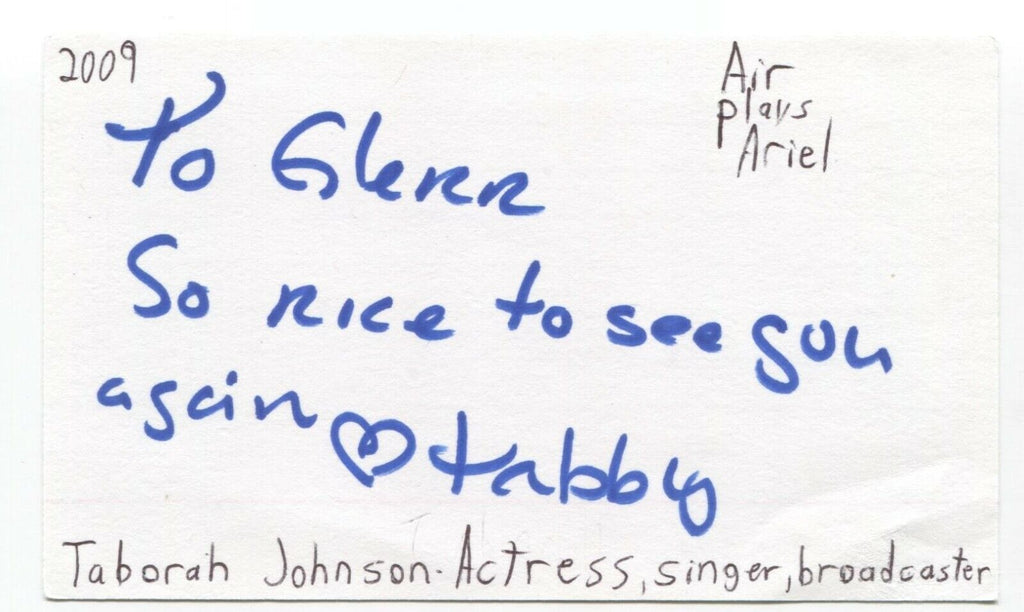 2009
Air
plays
Ariel
To Glenn
So nice to see you
again ♡ tabby
Taborah Johnson - Actress, singer, broadcaster